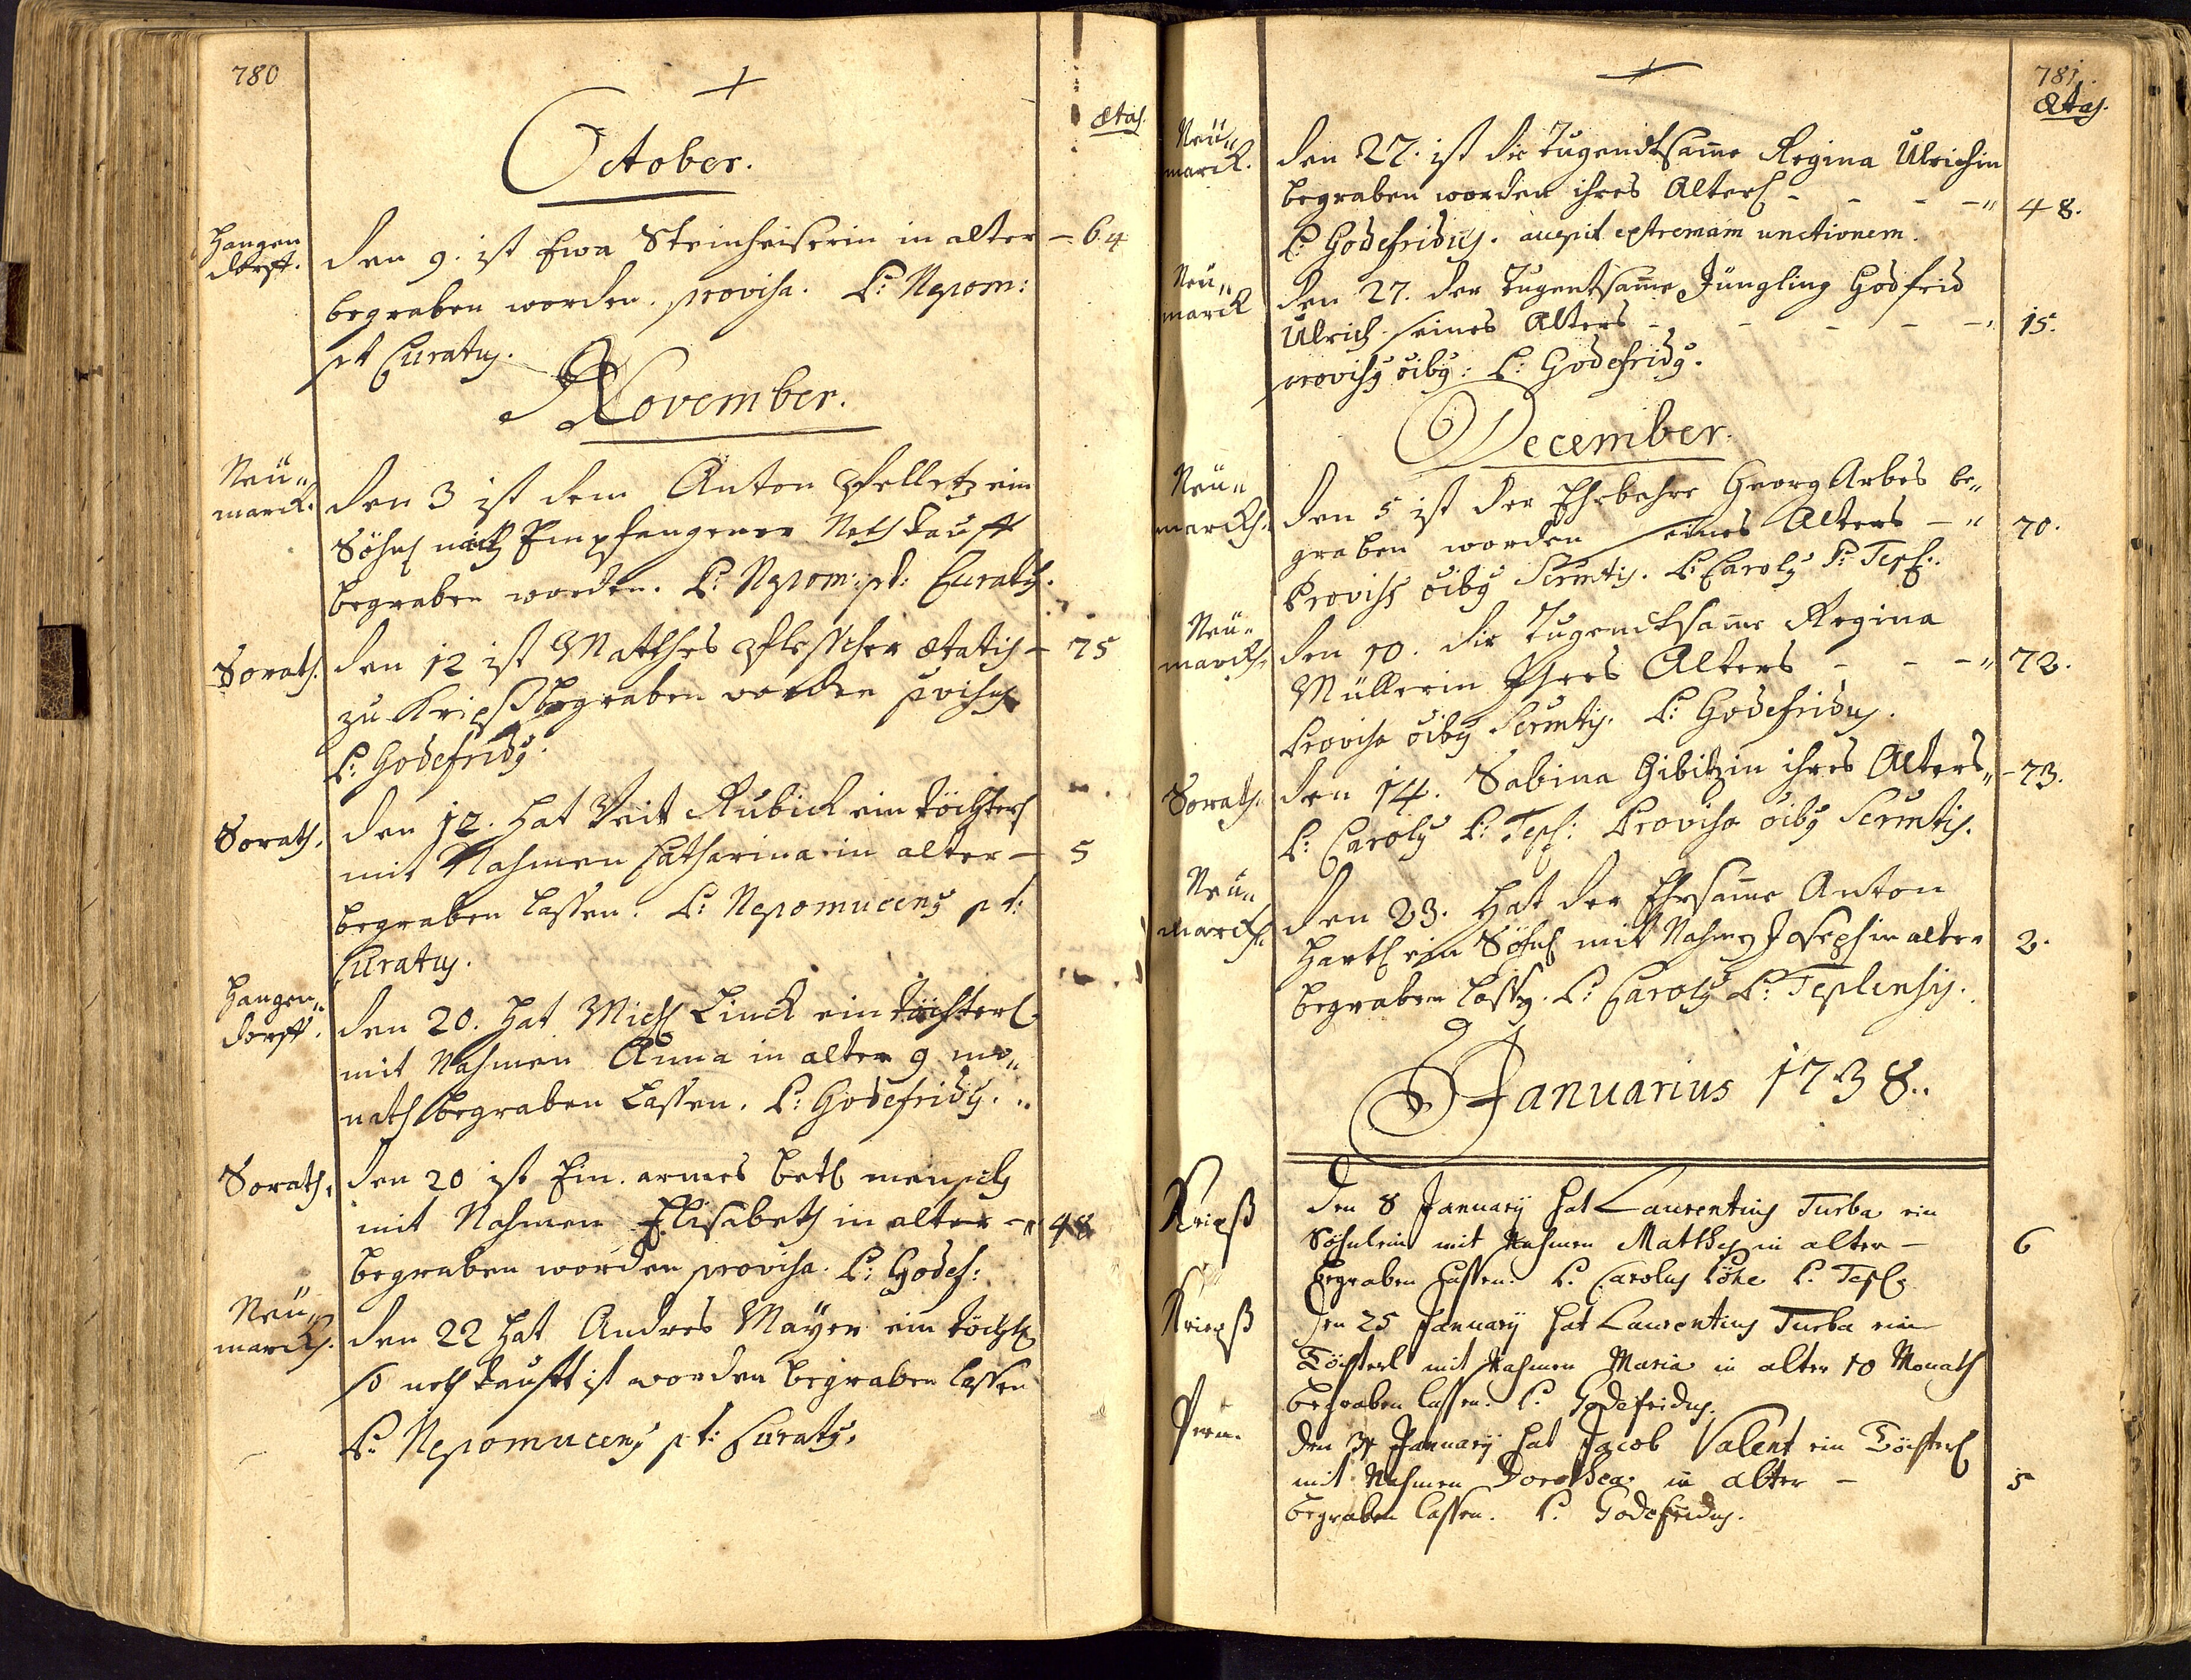 780
+
ætas.
October.
Hangen
dorff.
den 9. ist Ewa Steinheiserin in alter - 64
begraben worden. provisa. P: Nepom:
pt Curatus.
November.
Neü=
marck.
den 3 ist dem Anton Pfelletz ein
Söhnl nach Empfangener Noth tauff
begraben worden. P: Nepom: pt: Curatus.
Sorath.
den 12 ist Matthes Pfletscher ætatis - 75
zu Kriepß begraben worden pvisus
P: Godefridus.
Sorath.
den 12. hat Veit Rubick ein töchterl
mit Nahmen Catharina in alter - 5
begraben lassen. P: Nepomucenus pt:
Curatus.
Hangen=
dorff.
den 20. hat Michl Linck ein töchterl
mit Nahmen Anna in alter 9 mo=
nath begraben Lassen. P: Godefridus.
Sorath.
den 20 ist Ein armes betl mensch
mit Nahmen Elisabeth in alter - 48
begraben worden provisa. P: Godef:
Neü=
marck.
den 22 hat Andres Mayer ein töchtl
so noth taufft ist worden begraben lassen
P: Nepomucenus pt: Curatus.
+
781.
ætas.
Neü=
marck.
den 27. ist die Tugendtsame Regina Ulrichin
begraben worden ihres Alters - - - - 48.
P: Godefridus. accepit extremam unctionem.
Neu=
marck
den 27. der Tugentsame Jüngling Godfrid
Ulrich seines Alters - - - - - 15.
provisus oibus: P: Godefridus.
December.
Neü=
marckh.
den 5 ist der Ehrbahre Georg Arbes be=
graben worden seines Alters - 70.
Provisus oibus Scrmtis. P: Carolus P: Tepl:
Neü=
marckh.
den 10. die Tugendtsame Regina
Müllerin Ihres Alters - - - 72.
Provisa oibus Scrmtis. P: Godefridus.
Sorath.
den 14. Sabina Gibitzin ihres Alters - 73.
P: Carolus P: Tepl: Provisa oibus Scrmtis.
Neu=
marckh.
den 23. hat der Ehrsame Anton
Hartl ein Söhnl mit Nahmen Joseph in alter 2.
begraben lassen. P: Carolus P: Teplensis.
Januarius 1738.
Kriepß
Den 8 January hat Laurentius Turba ein
Söhnlein mit Nahmen Matthes in alter - 6
begraben lassen. P. Carolus P. Tepl.
Kriepß
Den 25 January hat Laurentius Turba ein
Töchterl mit Nahmen Maria in alter 10 Monath
begraben lassen. P. Godefridus.
den 31 January hat Jacob Valent ein Töchterl
mit Nahmen Dorothea in alter - 5
begraben lassen. P. Godefridus.